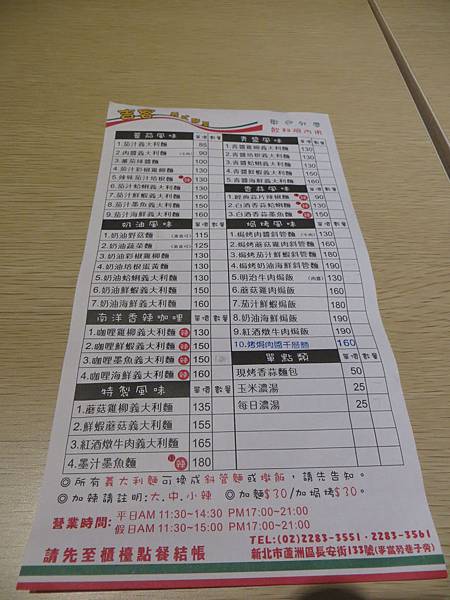 吉客 義式麵屋
歡迎外帶
飲料店內用
蕃茄風味 單價 數量
1.茄汁義大利麵 85
2.肉醬義大利麵 (牛肉) 90
3.蕃茄辣醬麵 100
4.茄汁彩椒雞柳麵 130
5.辣味茄汁培根麵 辣 130
6.茄汁蛤蜊義大利麵 130
7.茄汁鮮蝦義大利麵 150
8.茄汁墨魚義大利麵 150
9.茄汁海鮮義大利麵 160
奶油風味 單價 數量
1.奶油野菇麵 (素食可) 115
2.奶油蔬菜麵 (素食可) 125
3.奶油彩椒雞柳麵 130
4.奶油培根蛋黃麵 130
5.奶油蛤蜊義大利麵 130
6.奶油鮮蝦義大利麵 150
7.奶油海鮮義大利麵 160
南洋香辣咖哩 單價 數量
1.咖哩雞柳義大利麵 辣 130
2.咖哩鮮蝦義大利麵 辣 150
3.咖哩墨魚義大利麵 辣 150
4.咖哩海鮮義大利麵 辣 160
特製風味 單價 數量
1.蘑菇雞柳義大利麵 135
2.鮮蝦蘑菇義大利麵 155
3.紅酒燉牛肉義大利麵 165
4.墨汁墨魚麵 辣 180
青醬風味 單價 數量
1.青醬雞柳義大利麵 130
2.青醬培根義大利麵 130
3.青醬蛤蜊義大利麵 130
4.青醬鮮蝦義大利麵 150
5.青醬海鮮義大利麵 160
香蒜風味 單價 數量
1.經典蒜片辣椒麵 辣 90
2.白酒香蒜蛤蜊麵 辣 130
3.白酒香蒜墨魚麵 辣 150
焗烤風味 單價 數量
1.焗烤肉醬斜管麵 (牛肉) 130
2.焗烤蘑菇雞肉斜管麵 160
3.焗烤茄汁鮮蝦斜管麵 180
4.焗烤奶油海鮮斜管麵 190
5.明治牛肉焗飯 (肉醬) 130
6.蘑菇雞肉焗飯 160
7.茄汁鮮蝦焗飯 180
8.奶油海鮮焗飯 190
9.紅酒燉牛肉焗飯 190
10.烤焗肉醬千層麵 160
單點類
現烤香蒜麵包 50
玉米濃湯 25
每日濃湯 25
◎所有義大利麵可換成斜管麵或燉飯，請先告知。
◎加辣請註明:大.中.小辣 ◎加麵$30/加焗烤$30。
營業時間: 平日AM 11:30~14:30 PM17:00~21:00
假日AM 11:30~15:00 PM17:00~21:00
TEL:(02)2283-3551·2283-3561
請先至櫃檯點餐結帳
新北市蘆洲區長安街133號(麥當勞巷子旁)